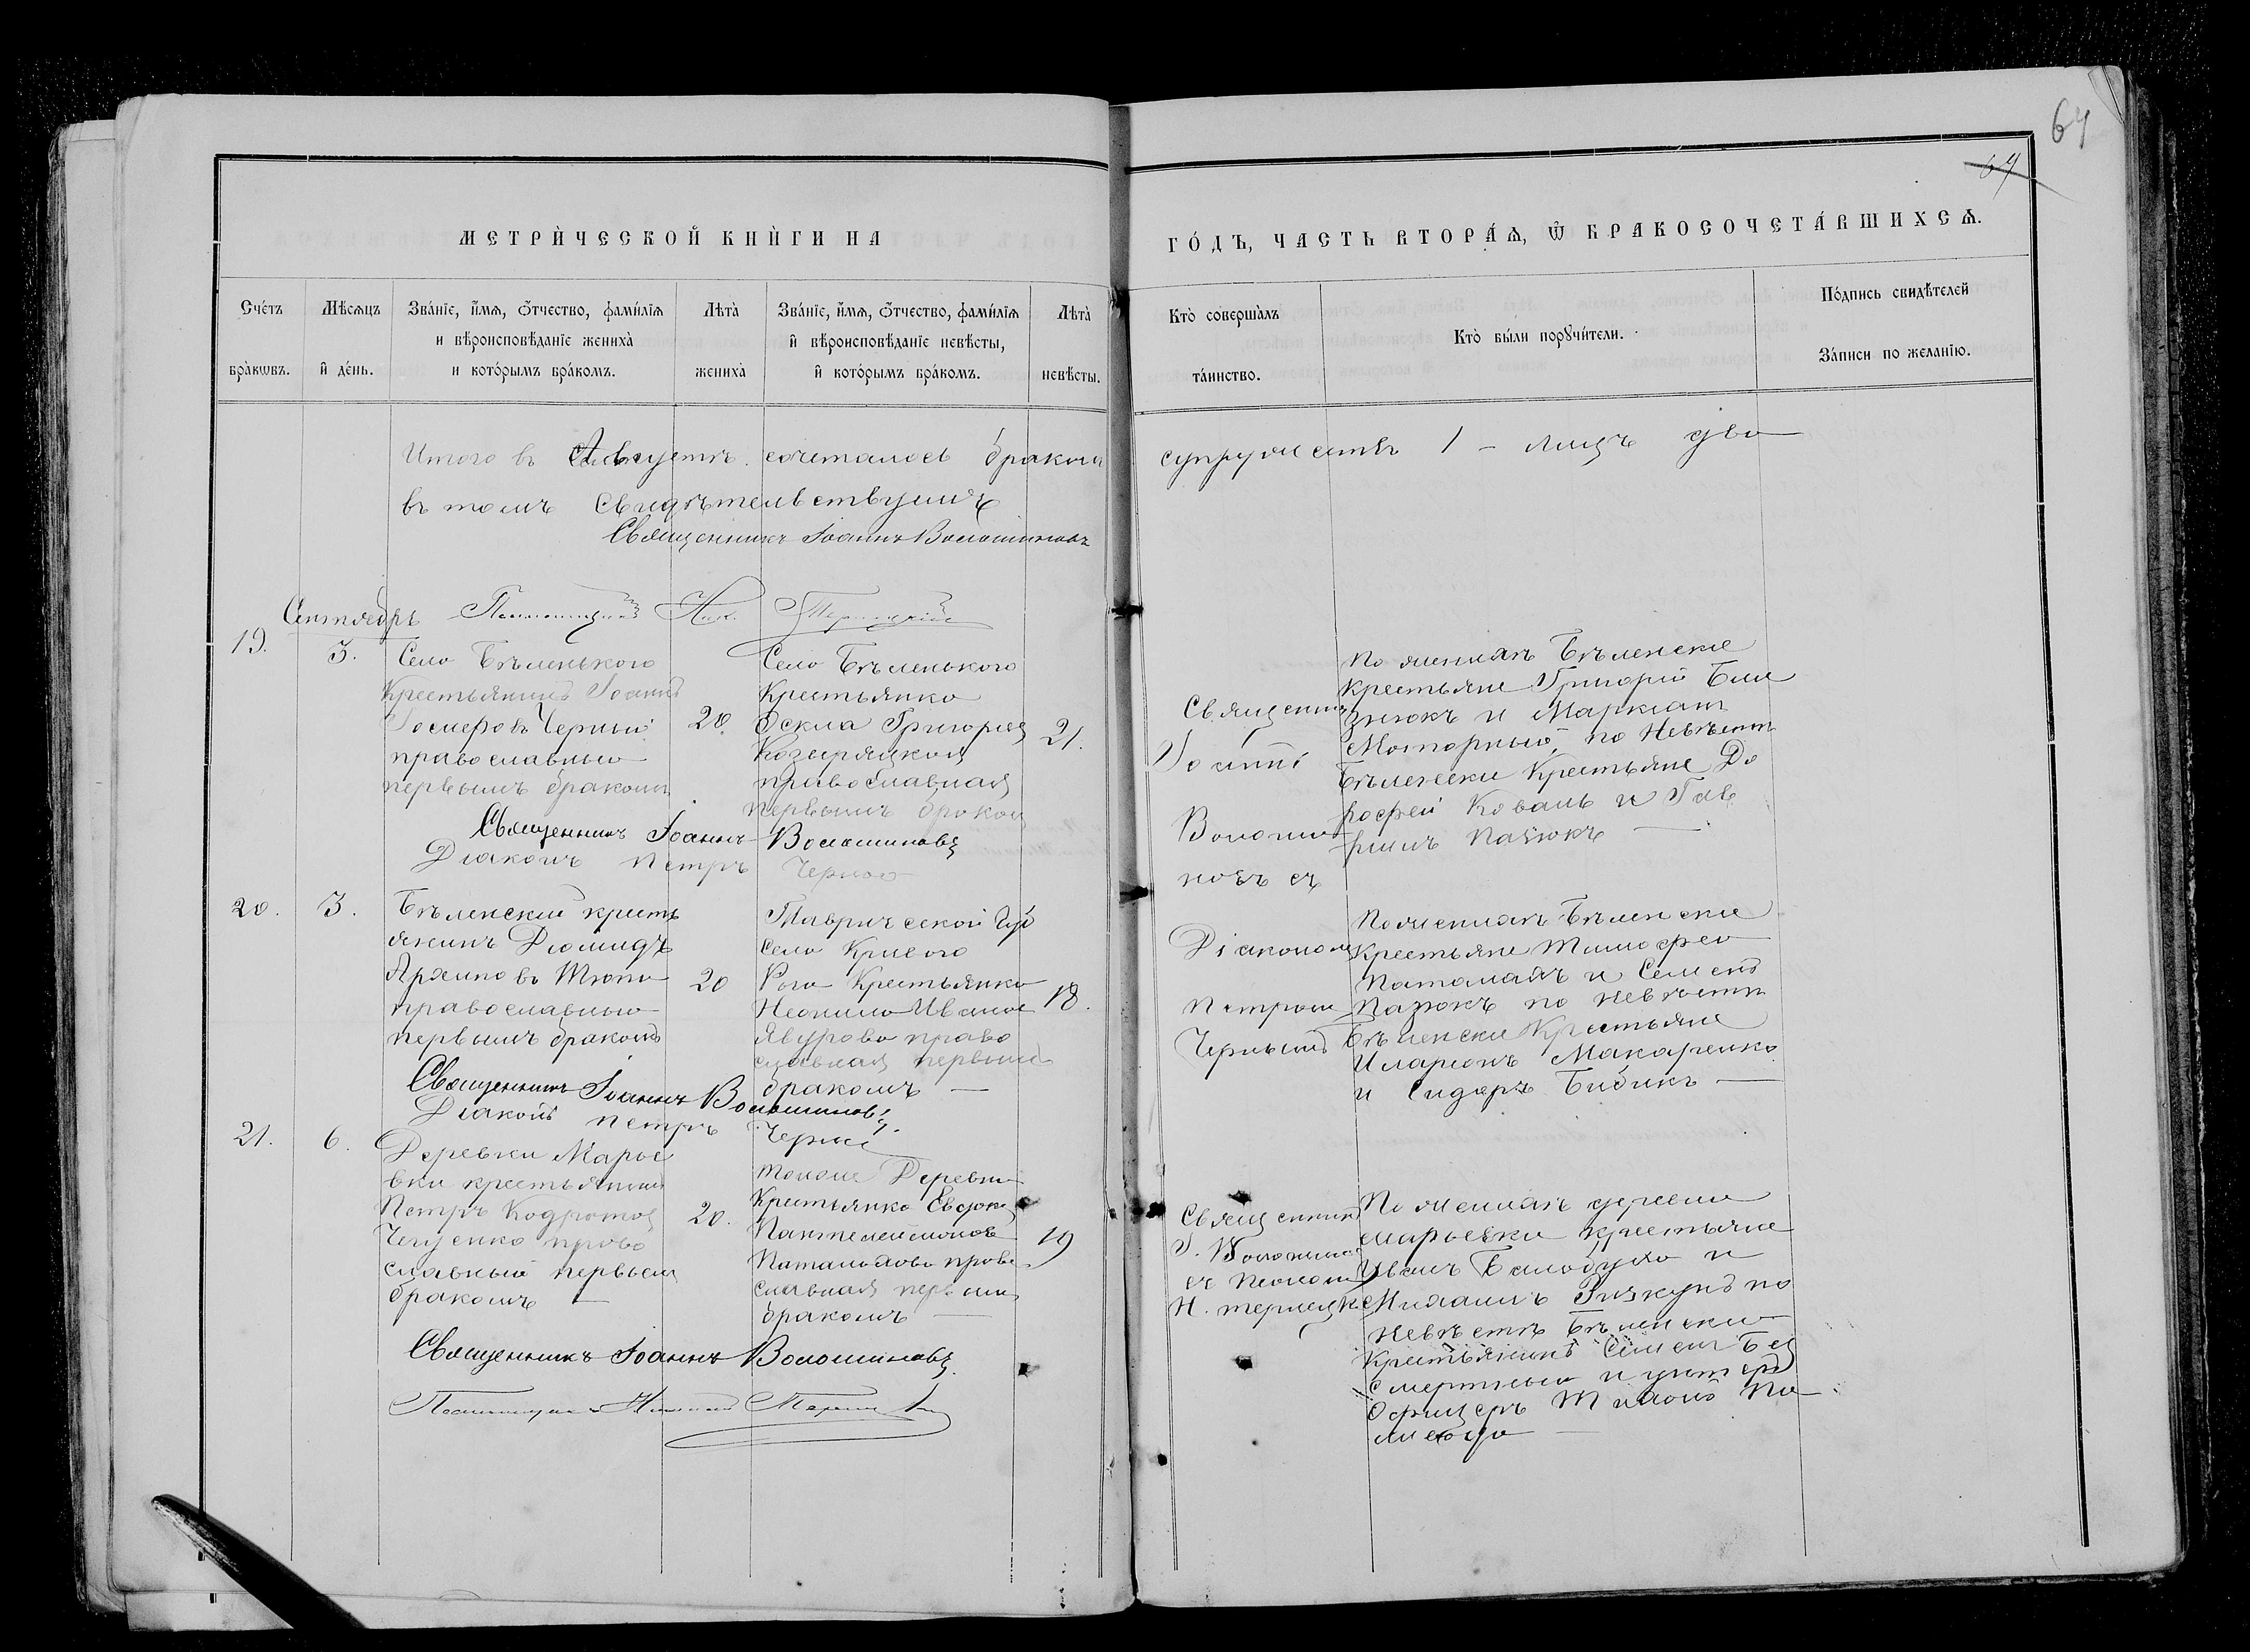 64
64
МЕТРИ́ЧЕСКОЙ КНИ́ГИ НА
ГО́ДЪ, ЧАСТЬ ВТОРА́Ѧ, Ѿ БРАКОСОЧЕТА́ВШИХСѦ.
Сче́тъ бра́кѡвъ.
Мѣ́сѧцъ и́ де́нь.
Зва́нїе, и́мѧ, ѻ́тчество, фами́лїѧ
и вѣроисповѣ́данїе жениха̀
и кото́рымъ бра́комъ.
Лѣта̀ жениха̀
Зва́нїе, и́мѧ, ѻ́тчество, фами́лїѧ
и́ вѣроисповѣ́данїе невѣ́сты,
и́ кото́рымъ бра́комъ.
Лѣта̀ невѣ́сты.
Кто̀ соверша́лъ
та́инство.
Кто̀ бы́ли порꙋчи́тели.
По́дпись свидѣ́телей
За́писи по жела́нїю.
Итого въ Августѣ сочеталось бракомъ
супружествъ 1 – лицъ два
въ томъ свидѣтельствуемъ
Священникъ Іоаннъ Волошиновъ
Сентябрь
19.
3.
Село Бѣленького
Крестьянинъ Іоаннъ
Черный
православный
первымъ бракомъ
20.
Село Бѣленького
Крестьянка
Григорьев
православная
первымъ браком
21.
Священни
Іоаннъ
Волоши
новъ съ
По женихѣ Бѣленские
Крестьяне Григорій Бли
знюкъ и Маркіанъ
Моторный, по Невѣстѣ
Бѣленские Крестьяне До
рофей Коваль и Гав
рилъ Пазюкъ
Священникъ Іоаннъ Волошиновъ
Діаконъ Петръ Черной
20.
3.
Бѣленский кресть
янинъ Діомидъ
Архиповъ Тюпа
православный
первымъ бракомъ
20
Таврической Губ
села Кривого
Рога Крестьянка
Неонила Иванов
Явурова право
славная первымъ
бракомъ
18.
Діакономъ
Петромъ
Чернымъ
По женихѣ Бѣленские
Крестьяне Тимофей
и Семенъ
Пазюкъ по невѣстѣ
Бѣленские Крестьяне
Иларіонъ Макаренко
и Сидоръ Бибикъ
Священникъ Іоаннъ Волошиновъ
Діаконъ Петръ Черный
21.
6.
Деревни Марье
вки крестьянинъ
Петръ Кодратов
православный первымъ
бракомъ
20.
Тойже Деревни
Крестьянка Евдокія
Пантелеймонов
право
славная первымъ
бракомъ
19
Священник
І. Волошинов
съ Псалом
Н. Терлецки
По женихѣ деревни
Марьевки крестьяне
Иванъ Балабуха и
Михаилъ по
Невѣстѣ Бѣленски
Крестьянинъ Семенъ Без
смертный и унтеръ
Офицеръ Тихонъ
Священникъ Іоаннъ Волошиновъ